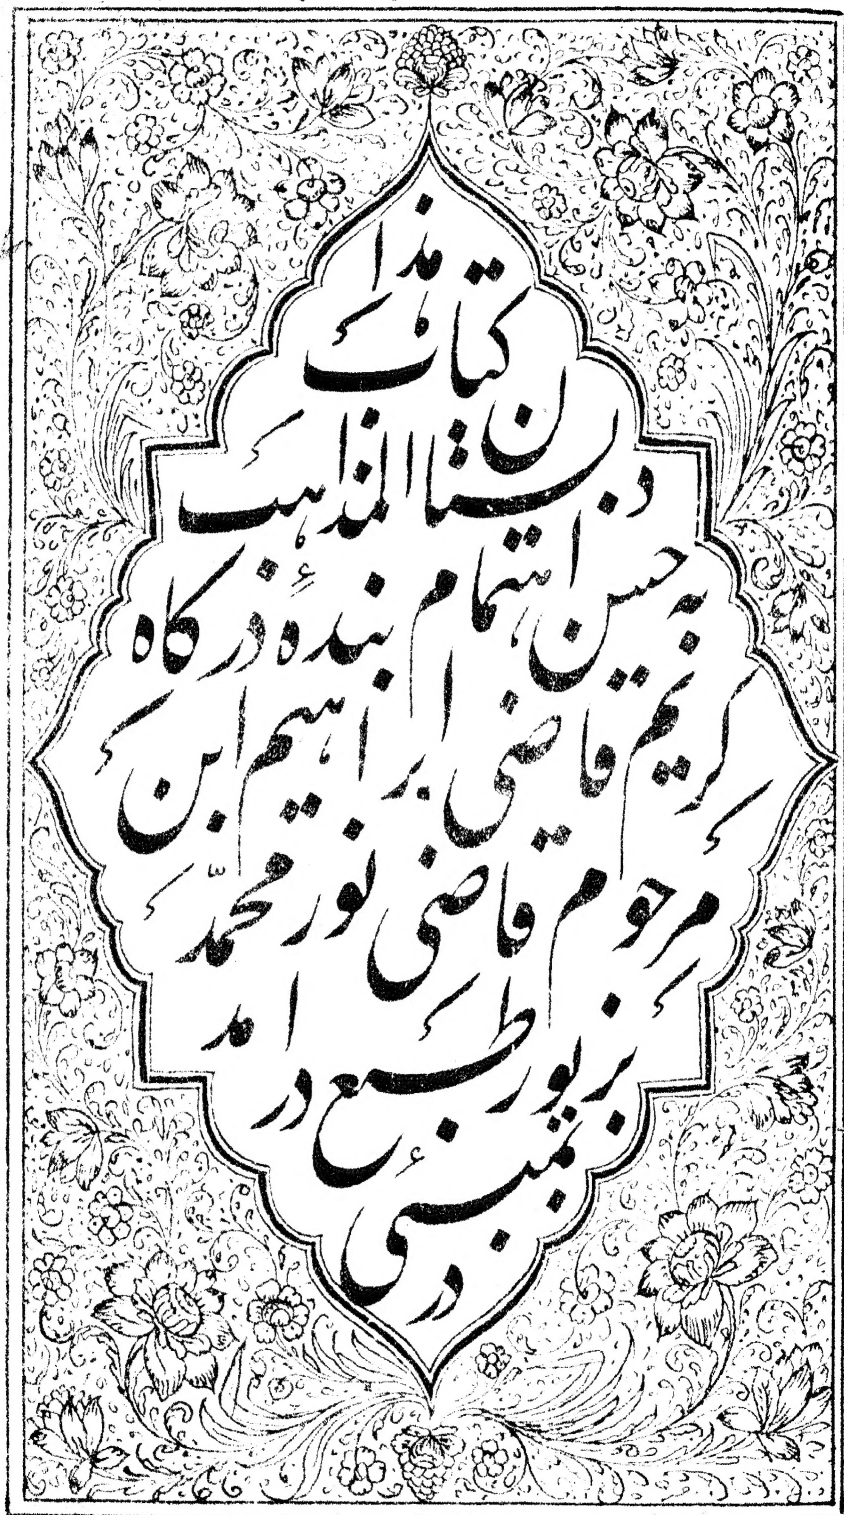 هذا
کتاب
دبستان المذاهب
به حسن اهتمام بندهٔ درکاه
کریم قاضی ابراهیم ابن
مرحوم قاضی نور محمّد
بزیور طبع در امد
در بمبئی